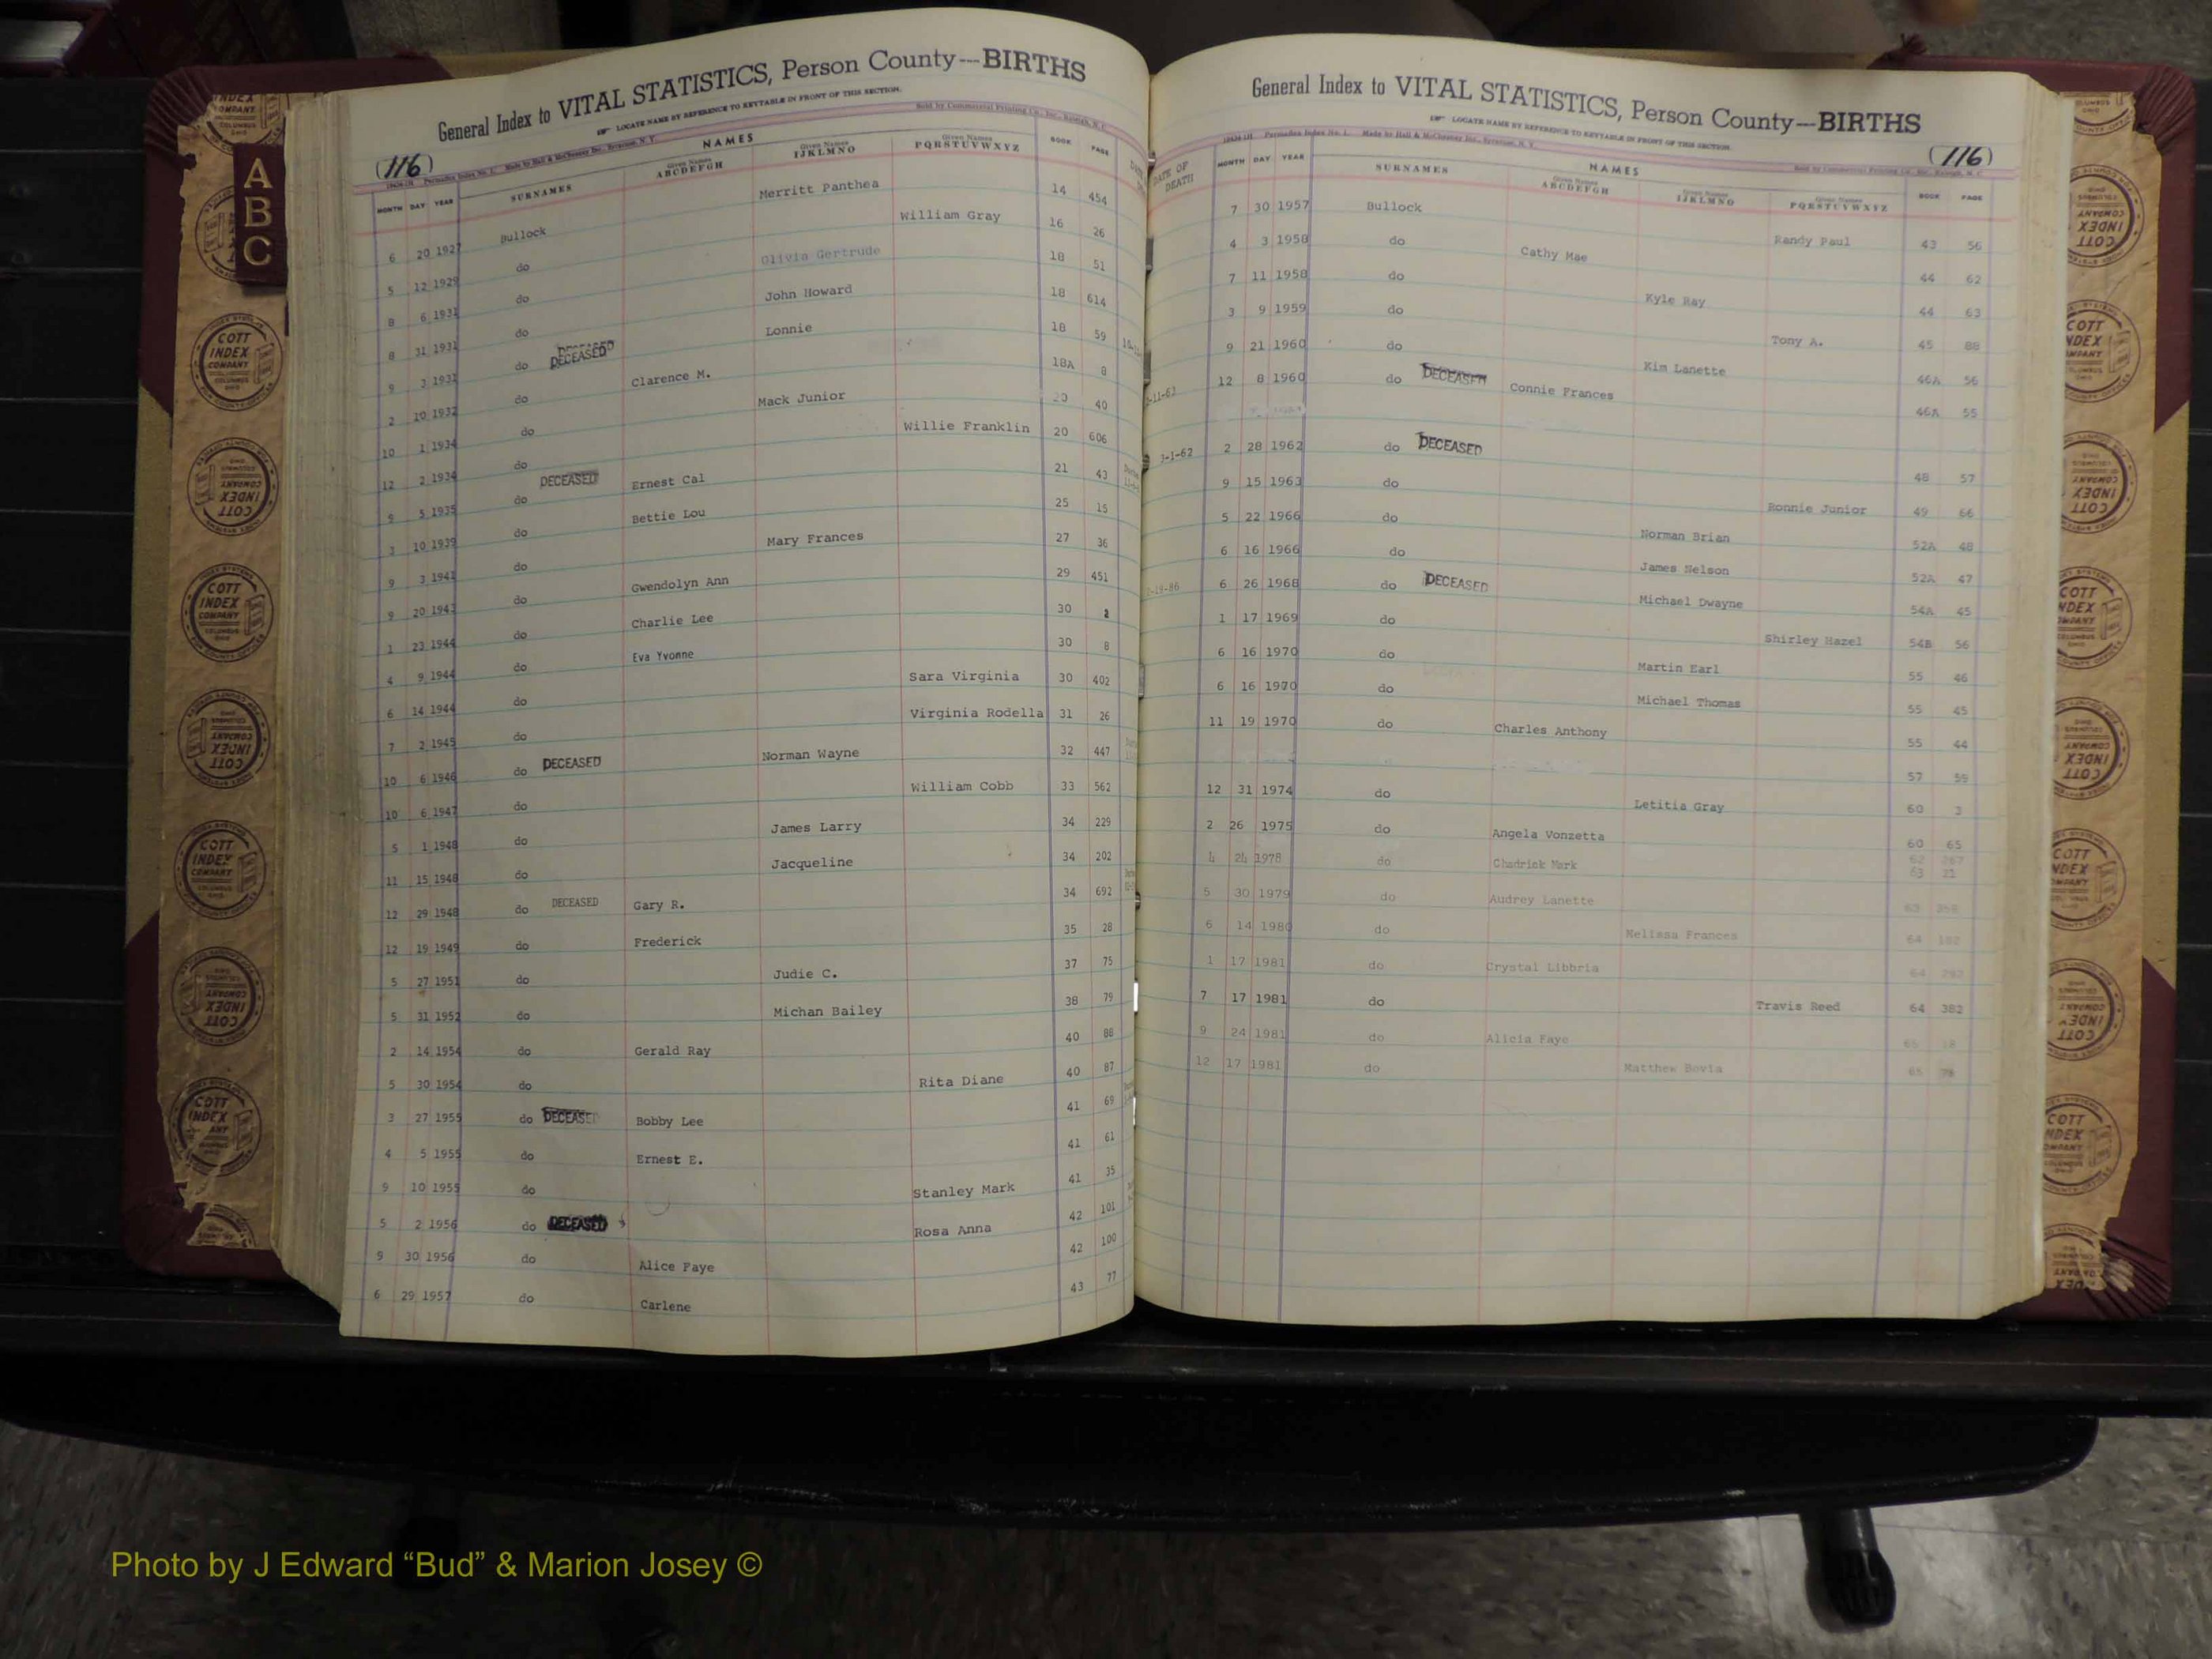 General Index to VITAL STATISTICS, Person County---BIRTHS
LOCATE NAME BY REFERENCE TO KEYTABLE IN FRONT OF THIS SECTION.
(116)
Sold by Commercial Printing Co., Inc., Raleigh, N. C.
NAMES
MONTH DAY YEAR SURNAMES Given Names ABCDEFGH Given Names IJKLMNO Given Names PQRSTUVWXYZ BOOK PAGE
6 20 1927 Bullock Merritt Panthea 14 454
5 12 1929 do William Gray 16 26
8 6 1931 do Olivia Gertrude 18 51
8 31 1931 do John Howard 18 614
9 3 1931 do DECEASED Lonnie 18 59
2 10 1932 do Clarence M. 18A 8
10 1 1934 do Mack Junior 20 40
12 2 1934 do Willie Franklin 20 606
9 5 1935 do DECEASED Ernest Cal 21 43
10 1939 do Bettie Lou 25 15
9 3 1941 do Mary Frances 27 36
9 20 1943 do Gwendolyn Ann 29 451
1 23 1944 do Charlie Lee 30 2
4 9 1944 do Eva Yvonne 30 8
6 14 1944 do Sara Virginia 30 402
7 2 1945 do Virginia Rodella 31 26
10 6 1946 do DECEASED Norman Wayne 32 447
10 6 1947 do William Cobb 33 562
5 1 1948 do James Larry 34 229
11 15 1948 do Jacqueline 34 202
12 29 1948 do DECEASED Gary R. 34 692
12 19 1949 do Frederick 35 28
5 27 1951 do Judie C. 37 75
5 31 1952 do Michan Bailey 38 79
2 14 1954 do Gerald Ray 40 88
5 30 1954 do Rita Diane 40 87
3 27 1955 do DECEASED Bobby Lee 41 69
4 5 1955 do Ernest E. 41 61
9 10 1955 do Stanley Mark 41 35
5 2 1956 do DECEASED Rosa Anna 42 101
9 30 1956 do Alice Faye 42 100
6 29 1957 do Carlene 43 77
General Index to VITAL STATISTICS, Person County---BIRTHS
LOCATE NAME BY REFERENCE TO KEYTABLE IN FRONT OF THIS SECTION.
(116)
NAMES
DATE OF DEATH MONTH DAY YEAR SURNAMES Given Names ABCDEFGH Given Names IJKLMNO Given Names PQRSTUVWXYZ BOOK PAGE
7 30 1957 Bullock Randy Paul 43 56
4 3 1958 do Cathy Mae 44 62
7 11 1958 do Kyle Ray 44 63
3 9 1959 do Tony A. 45 88
9 21 1960 do Kim Lanette 46A 56
12 8 1960 do DECEASED Connie Frances 46A 55
3-1-62 2 28 1962 do DECEASED 48 57
9 15 1963 do Ronnie Junior 49 66
5 22 1966 do Norman Brian 52A 48
6 16 1966 do James Nelson 52A 47
6 26 1968 do DECEASED Michael Dwayne 54A 45
1 17 1969 do Shirley Hazel 54B 56
6 16 1970 do Martin Earl 55 46
6 16 1970 do Michael Thomas 55 45
11 19 1970 do Charles Anthony 55 44
57 59
12 31 1974 do Letitia Gray 60 3
2 26 1975 do Angela Vonzetta 60 65
4 24 1978 do Chadrick Mark 62 267
63 21
5 30 1979 do Audrey Lanette
6 14 1980 do Melissa Frances 64
1 17 1981 do Crystal Libbria 64
7 17 1981 do Travis Reed 64 382
9 24 1981 do Alicia Faye 65
12 17 1981 do Matthew Bovia 65
A
B
C
COTT INDEX COMPANY COLUMBUS OHIO
Photo by J Edward “Bud” & Marion Josey ©